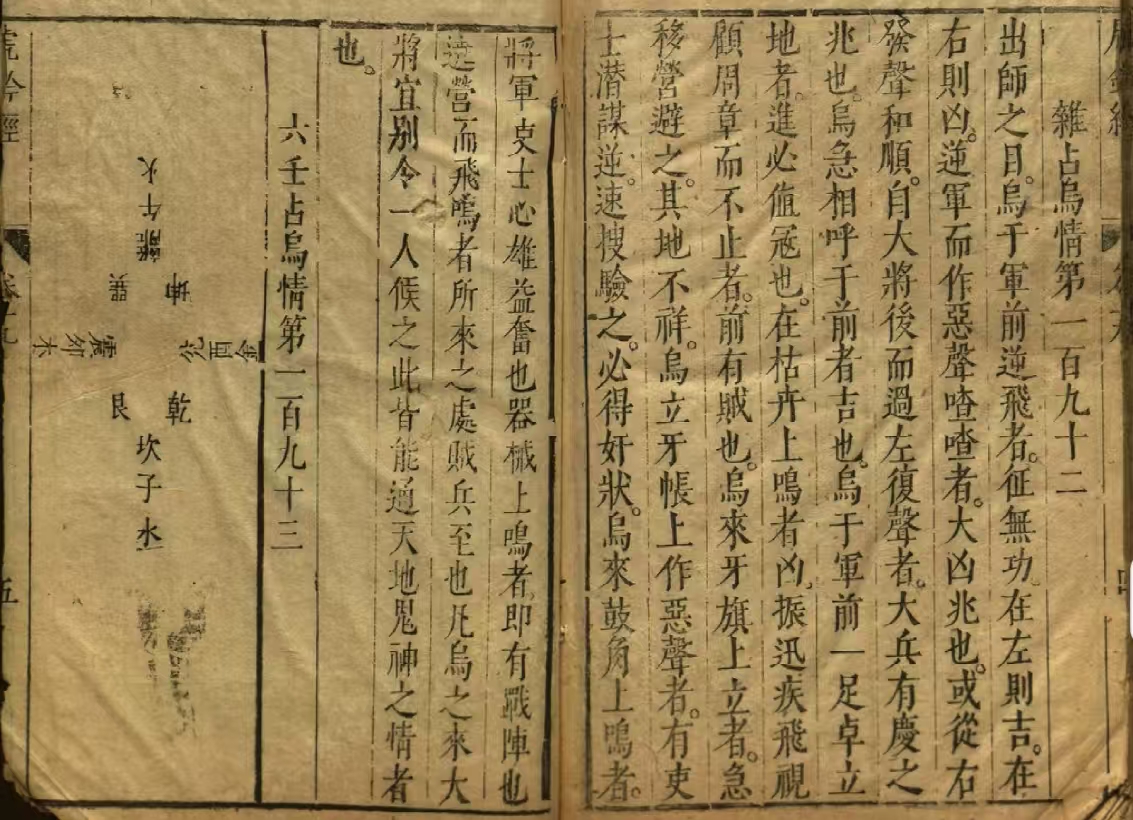 雜占烏情第一百九十二
出師之日。烏于軍前逆飛者。征無功。在左則吉。在
右則凶。逆軍而作惡聲喳喳者。大凶兆也。或從右
發聲和順。自大將後而過左復聲者。大兵有慶之
兆也。烏急相呼于前者吉也。烏于軍前一足卓立
地者。進必值寇也。在枯卉上鳴者凶。振迅疾飛視
顧周章而不止者。前有賊也。烏來牙旗上立者。急
移營避之。其地不祥。烏立牙帳上作惡聲者。有吏
士潛謀逆。速搜驗之。必得奸狀。烏來鼓角上鳴者。
將軍吏士心雄益奮也器械上鳴者。即有戰陣也
遶營而飛鳴者所來之處賊兵至也凡烏之來大
將宜別令一人候之此皆能通天地鬼神之情者
也。
六壬占烏情第一百九十三
離午火
巽
坤
震卯木
兌酉金
艮
乾
坎子水
虎鈐經
五